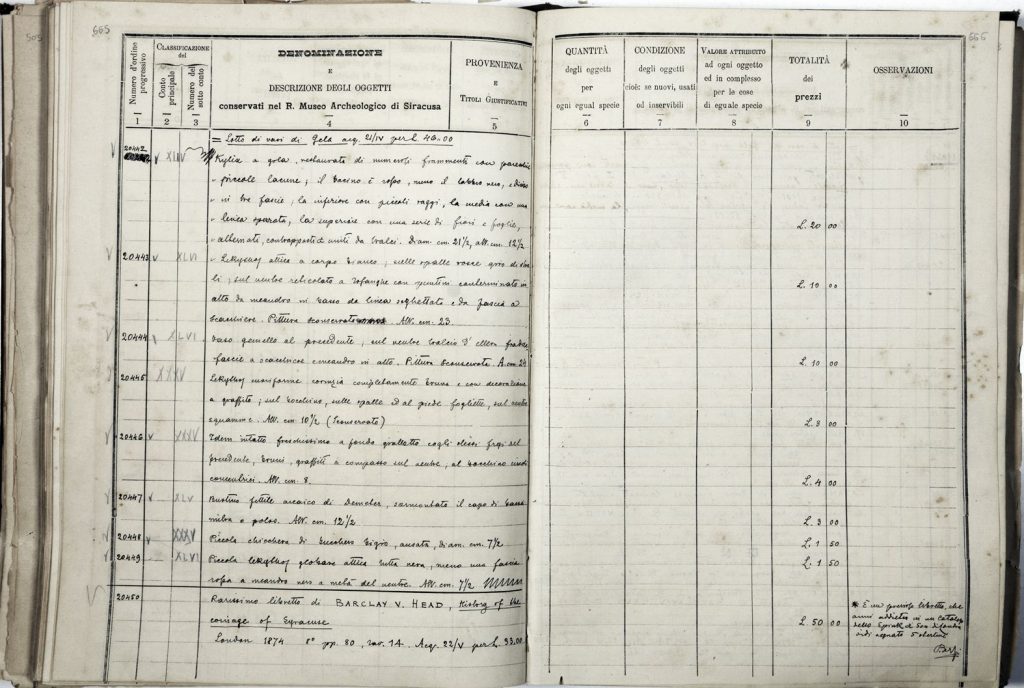 505
665
665
Numero d'ordine progressivo
CLASSIFICAZIONE
del
Conto principale
Numero del sotto conto
DENOMINAZIONE
E
DESCRIZIONE DEGLI OGGETTI
conservati nel R. Museo Archeologico di Siracusa
PROVENIENZA
E
TITOLI GIUSTIFICATIVI
1 2 3 4 5
QUANTITÀ
degli oggetti
per
ogni egual specie
6
CONDIZIONE
degli oggetti
cioè: se nuovi, usati
od inservibili
7
VALORE ATTRIBUITO
ad ogni oggetto
ed in complesso
per le cose
di eguale specie
8
TOTALITÀ
dei
prezzi
9
OSSERVAZIONI
10
= Lotto di vasi di Gela acq. 21/IV per L. 46.00
20442 v XLIV Kylix a gola, restaurata di numerosi frammenti con parecchie
piccole lacune; il bacino è rosso, meno il labbro nero, e diviso
in tre fascie; la inferiore con piccoli raggi, la media con una
linea spezzata, la superiore con una serie di fiori e foglie,
alternati, contrapposti e uniti da tralci. Diam. cm. 21½, alt. cm. 12½
L. 20 00
20443 v XLVI Lekythos attica a corpo bianco; sulle spalle rosse giro di
; sul ventre reticolato a losanghe con puntino conterminato in
alto da meandro in basso da linea seghettata e da fascia a
scacchiere. Pittura sconservata. Alt. cm. 23
L. 10 00
20444 XLVI Vaso gemello al precedente, sul ventre tralcio d'ellera fra due
fascie a scacchiere e meandro in alto. Pittura sconservata. A. cm. 24
L. 10 00
20445 XXXV Lekythos corinzia completamente bruna e con decorazione
a graffito; sul bocchino, sulle spalle e al piede fogliette, sul ventre
squamme. Alt. cm. 10½ (sconservato)
L. 3 00
20446 v XXXV Idem intatto freschissimo a fondo gialletto cogli stessi fregi del
precedente, bruni, graffiti a compasso sul ventre, al bocchino
concentrici. Alt. cm. 8.
L. 4 00
20447 v XLV Bustino fittile arcaico di Demeter, sormontato il capo di bassa
mitra o polos. Alt. cm. 12½
L. 3 00
20448 v XXXV Piccola chicchera di bucchero bigio, ansata, diam. cm. 7½
L. 1 50
20449 XLVI Piccola lekythos globare attica tutta nera, meno una fascia
rossa a meandro nero a metà del ventre. Alt. cm. 7½
L. 1 50
20450 Rarissimo libretto di BARCLAY V. HEAD, History of the
coinage of Syracuse
London 1874 8° pp. 80, tav. 14. Acq. 22/V per L. 33.00.
L. 50 00
* È un prezioso libretto, che
anni addietro in un Catalogo
dello Spink di Londra
vidi segnato 5 sterline